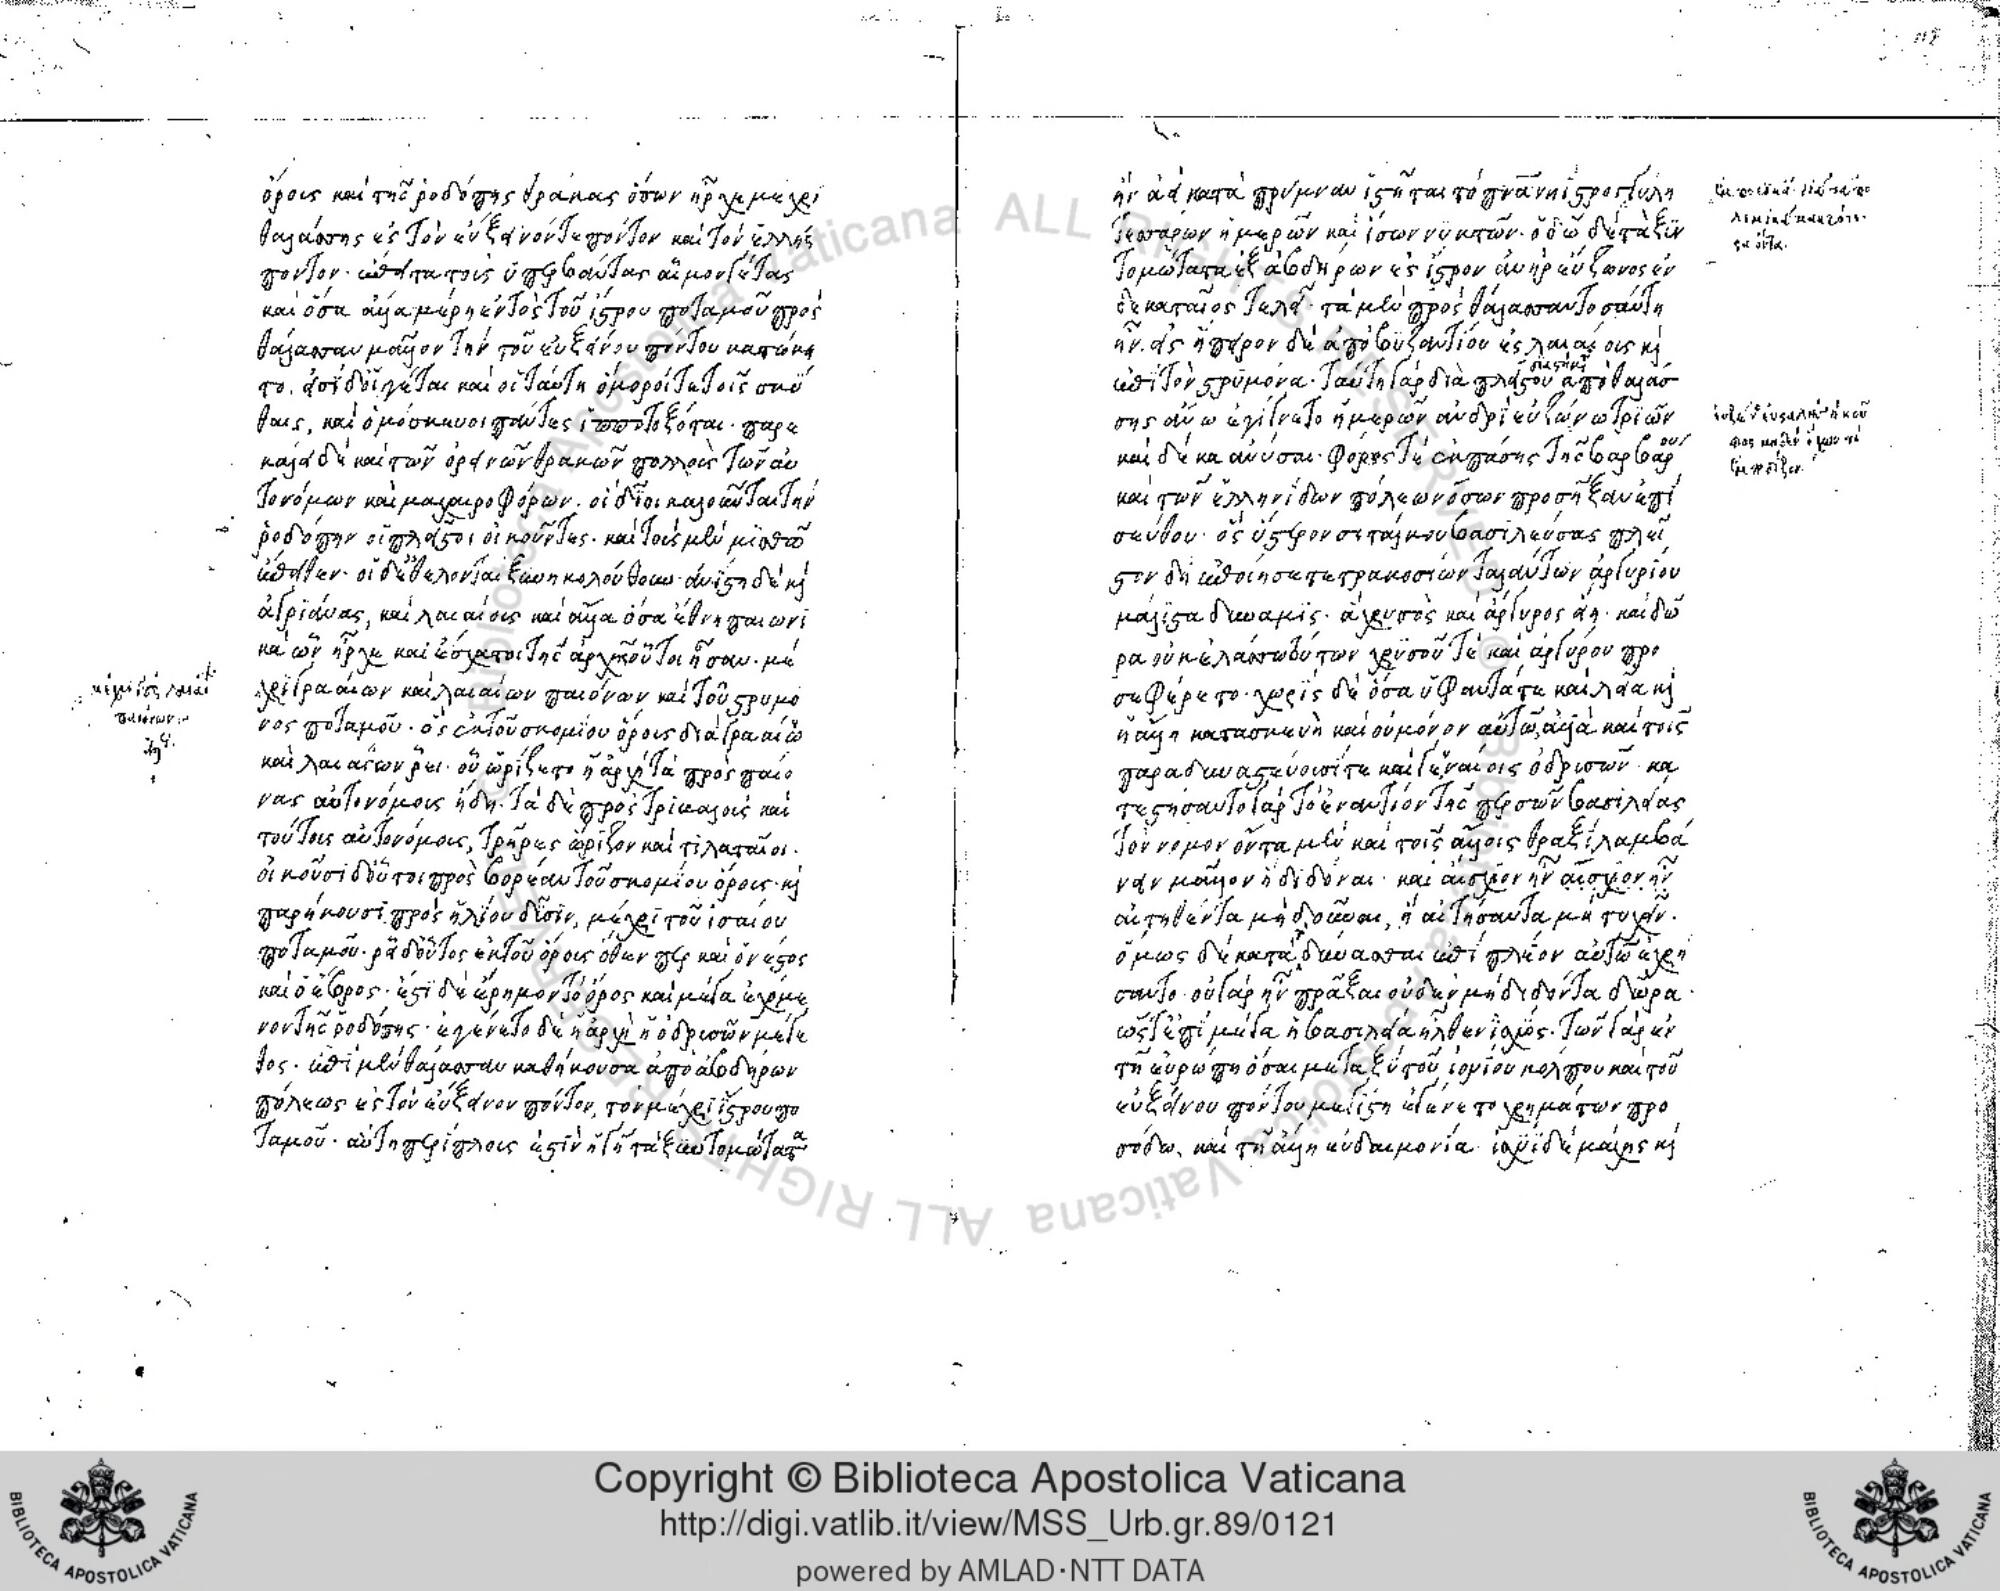 ὄροις καὶ τῆς ῥοδόπης θρᾶκας ὅσων ἦρχε μέχρι
θαλάσσης ἐς τὸν εὔξεινόν τε πόντον καὶ τὸν ἑλλήσ
ποντον· ἔπειτα τοὺς ὑπερβάντας αἷμον γέτας
καὶ ὅσα ἄλλα μέρη ἐντὸς τοῦ ἴστρου ποταμοῦ πρὸς
θάλασσαν μᾶλλον τὴν τοῦ εὐξείνου πόντου κατῴκη
το. εἰσὶ δ' οἱ γέται καὶ οἱ ταύτῃ ὅμοροί τε τοῖς σκύ
θαις, καὶ ὁμόσκευοι πάντες ἱπποτοξόται· παρε
κάλει δὲ καὶ τῶν ὀρεινῶν θρακῶν πολλοὺς τῶν αὐ
τονόμων καὶ μαχαιροφόρων. οἳ δῖοι καλοῦνται τὴν
ῥοδόπην οἱ πλεῖστοι οἰκοῦντες· καὶ τοὺς μὲν μισθῶ
ἔπειθεν· οἱ δ' ἐθελονταὶ ξυνηκολούθουν· ἀνίστη δὲ κὶ
ἀγριάνας, καὶ λαιαίους καὶ ἄλλα ὅσα ἔθνη παιωνι
κὰ ὧν ἦρχε καὶ ἔσχατοι τῆς ἀρχῆς οὗτοι ἦσαν· μέ
χρι γρααίων καὶ λαιαίων παιόνων καὶ τοῦ στρυμό
νος ποταμοῦ· ὃς ἐκ τοῦ σκομίου ὄρους διὰ γρααίων
καὶ λαιαίων ῥεῖ· οὗ ὡρίζετο ἡ ἀρχὴ τὰ πρὸς παίο
νας αὐτονόμους ἤδη. τὰ δὲ πρὸς τριβαλοὺς καὶ
τούτους αὐτονόμους, τρῆρες ὥριζον καὶ τιλαταῖοι.
οἰκοῦσι δ' οὗτοι πρὸς βορέαν τοῦ σκομίου ὄρους· κὶ
παρήκουσι πρὸς ἡλίου δύσιν, μέχρι τοῦ ἰσαίου
ποταμοῦ· ῥεῖ δ' οὗτος ἐκ τοῦ ὄρους ὅθεν περ καὶ ὁ νέστος
καὶ ὁ ἕβρος· ἔστι δὲ ἔρημον τὸ ὄρος καὶ μέγα ἐχόμε
νον τῆς ῥοδόπης· ἐγένετο δὲ ἡ ἀρχὴ ἡ ὀδρισῶν μέγε
θος· ἐπὶ μὲν θάλασσαν καθήκουσα ἀπὸ ἀβδήρων
πόλεως ἐς τὸν εὔξεινον πόντον, τὸν μέχρι ἴστρου πο
ταμοῦ· αὕτη περίπλους ἐστὶν ἡ γῆ τὰ ξυντομώτατα
ἢν ἀεὶ κατὰ πρύμναν ἱστῆται τὸ πνεῦμα νηῒ στρογγύλη
τεσσάρων ἡμερῶν καὶ ἴσων νυκτῶν· ὁδῶ δὲ τὰ ξυν
τομώτατα ἐξ ἀβδήρων ἐς ἴστρον ἀνὴρ εὔζωνος ἑν
δεκαταῖος τελεῖ· τὰ μὲν πρὸς θάλασσαν τοσαύτη
ἦν. ἐς ἤπειρον δὲ ἀπὸ βυζαντίου ἐς λαιαίους κὶ
ἐπὶ τὸν στρυμόνα· ταύτη γὰρ διὰ πλείστου ἀπὸ θαλάσ
σης ἄνω ἐγίγνετο ἡμερῶν ἀνδρὶ εὐζώνω τριῶν
καὶ δέκα ἀνύσαι· φόρος τὲ ἐκ πάσης τῆς βαρβάρου
καὶ τῶν ἑλληνίδων πόλεων ὅσων προσῆξαν ἐπὶ
σεύθου· ὃς ὕστερον σιτάλκου βασιλεύσας πλεῖ
στον δὴ ἐποίησε τετρακοσίων ταλάντων ἀργυρίου
μάλιστα δύναμις· ἃ χρυσὸς καὶ ἄργυρος εἴη· καὶ δῶ
ρα οὐκ ἐλάσσω τούτων χρυσοῦ τὲ καὶ ἀργύρου προ
σεφέρετο· χωρὶς δὲ ὅσα ὑφαντά τε καὶ λεῖα κὶ
ἡ ἄλλη κατασκευὴ καὶ οὐ μόνον αὐτῶ, ἀλλὰ καὶ τοῖς
παραδυναστεύουσί τε καὶ γενναίοις ὀδρισῶν· κα
τεστήσαντο γὰρ τὸ ἐναντίον τῆς περσῶν βασιλείας
τὸν νόμον ὄντα μὲν καὶ τοῖς ἄλλοις θραξὶ λαμβά
νειν μᾶλλον ἢ διδόναι· καὶ αἴσχιον ἦν αἴσχιον ἦν
αἰτηθέντα μὴ δοῦναι, ἢ αἰτήσαντα μὴ τυχεῖν.
ὅμως δὲ κατὰ δύνασθαι ἐπὶ πλέον αὐτῶ ἐχρή
σαντο· οὐ γὰρ ἦν πρᾶξαι οὐδὲν μὴ διδόντα δῶρα·
ὥστε ἐπὶ μέγα ἡ βασιλεία ἦλθεν ἰσχύος. τῶν γὰρ ἐν
τῆ εὐρώπη ὅσαι μεταξὺ τοῦ ἰονίου κόλπου καὶ τοῦ
εὐξείνου πόντου μεγίστη ἐγένετο χρημάτων προ
σόδω, καὶ τῆ ἄλλη εὐδαιμονία· ἰσχύϊ δὲ μάχης κὶ
Copyright © Biblioteca Apostolica Vaticana
http://digi.vatlib.it/view/MSS_Urb.gr.89/0121
powered by AMLAD·NTT DATA
BIBLIOTECA APOSTOLICA VATICANA
BIBLIOTECA APOSTOLICA VATICANA